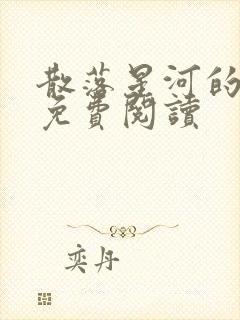 散落星河的
免費閱讀
奕丹